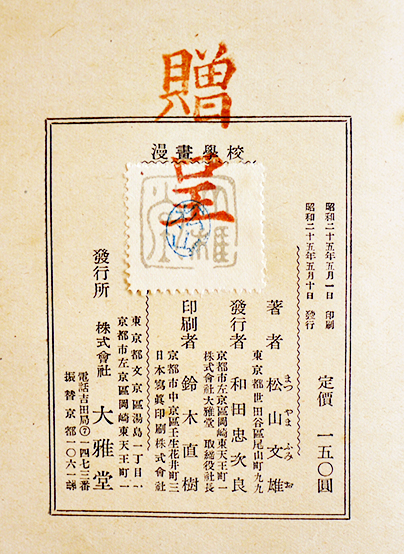 贈呈
漫畫學校
定價 一五〇圓
昭和二十五年五月一日 印刷
昭和二十五年五月十日 發行
著者 松山文雄
まつ やま ふみ お
東京都世田谷區尾山町九九
發行者 和田忠次良
京都市左京區岡崎東天王町一
株式會社大雅堂 取締役社長
印刷者 鈴木直樹
京都市中京區壬生花井町三
日本寫眞印刷株式會社
發行所 株式會社 大雅堂
東京都文京區湯島一丁目一
京都市左京區岡崎東天王町一
電話吉田局⑦一四七三番
振替京都一〇六一